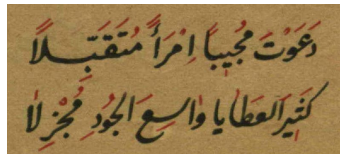 دَعَوْتَ مُجِيبًا اِمْرَأً مُتَقَبِّلًا
كَثِيرَ العَطَايا وٰاسِعَ الجُودِ مُجْزِلًا